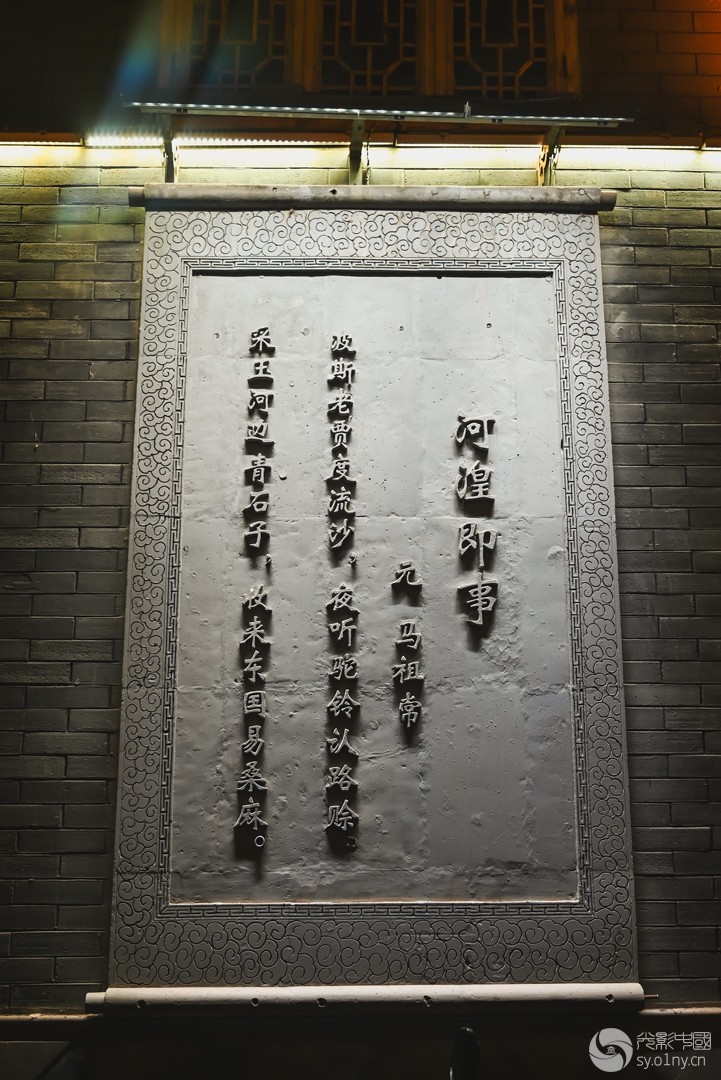 河湟即事
元 马祖常
波斯老贾度流沙，夜听驼铃认路赊。
采玉河边青石子，收来东国易桑麻。
光影中國
sy.o1ny.cn